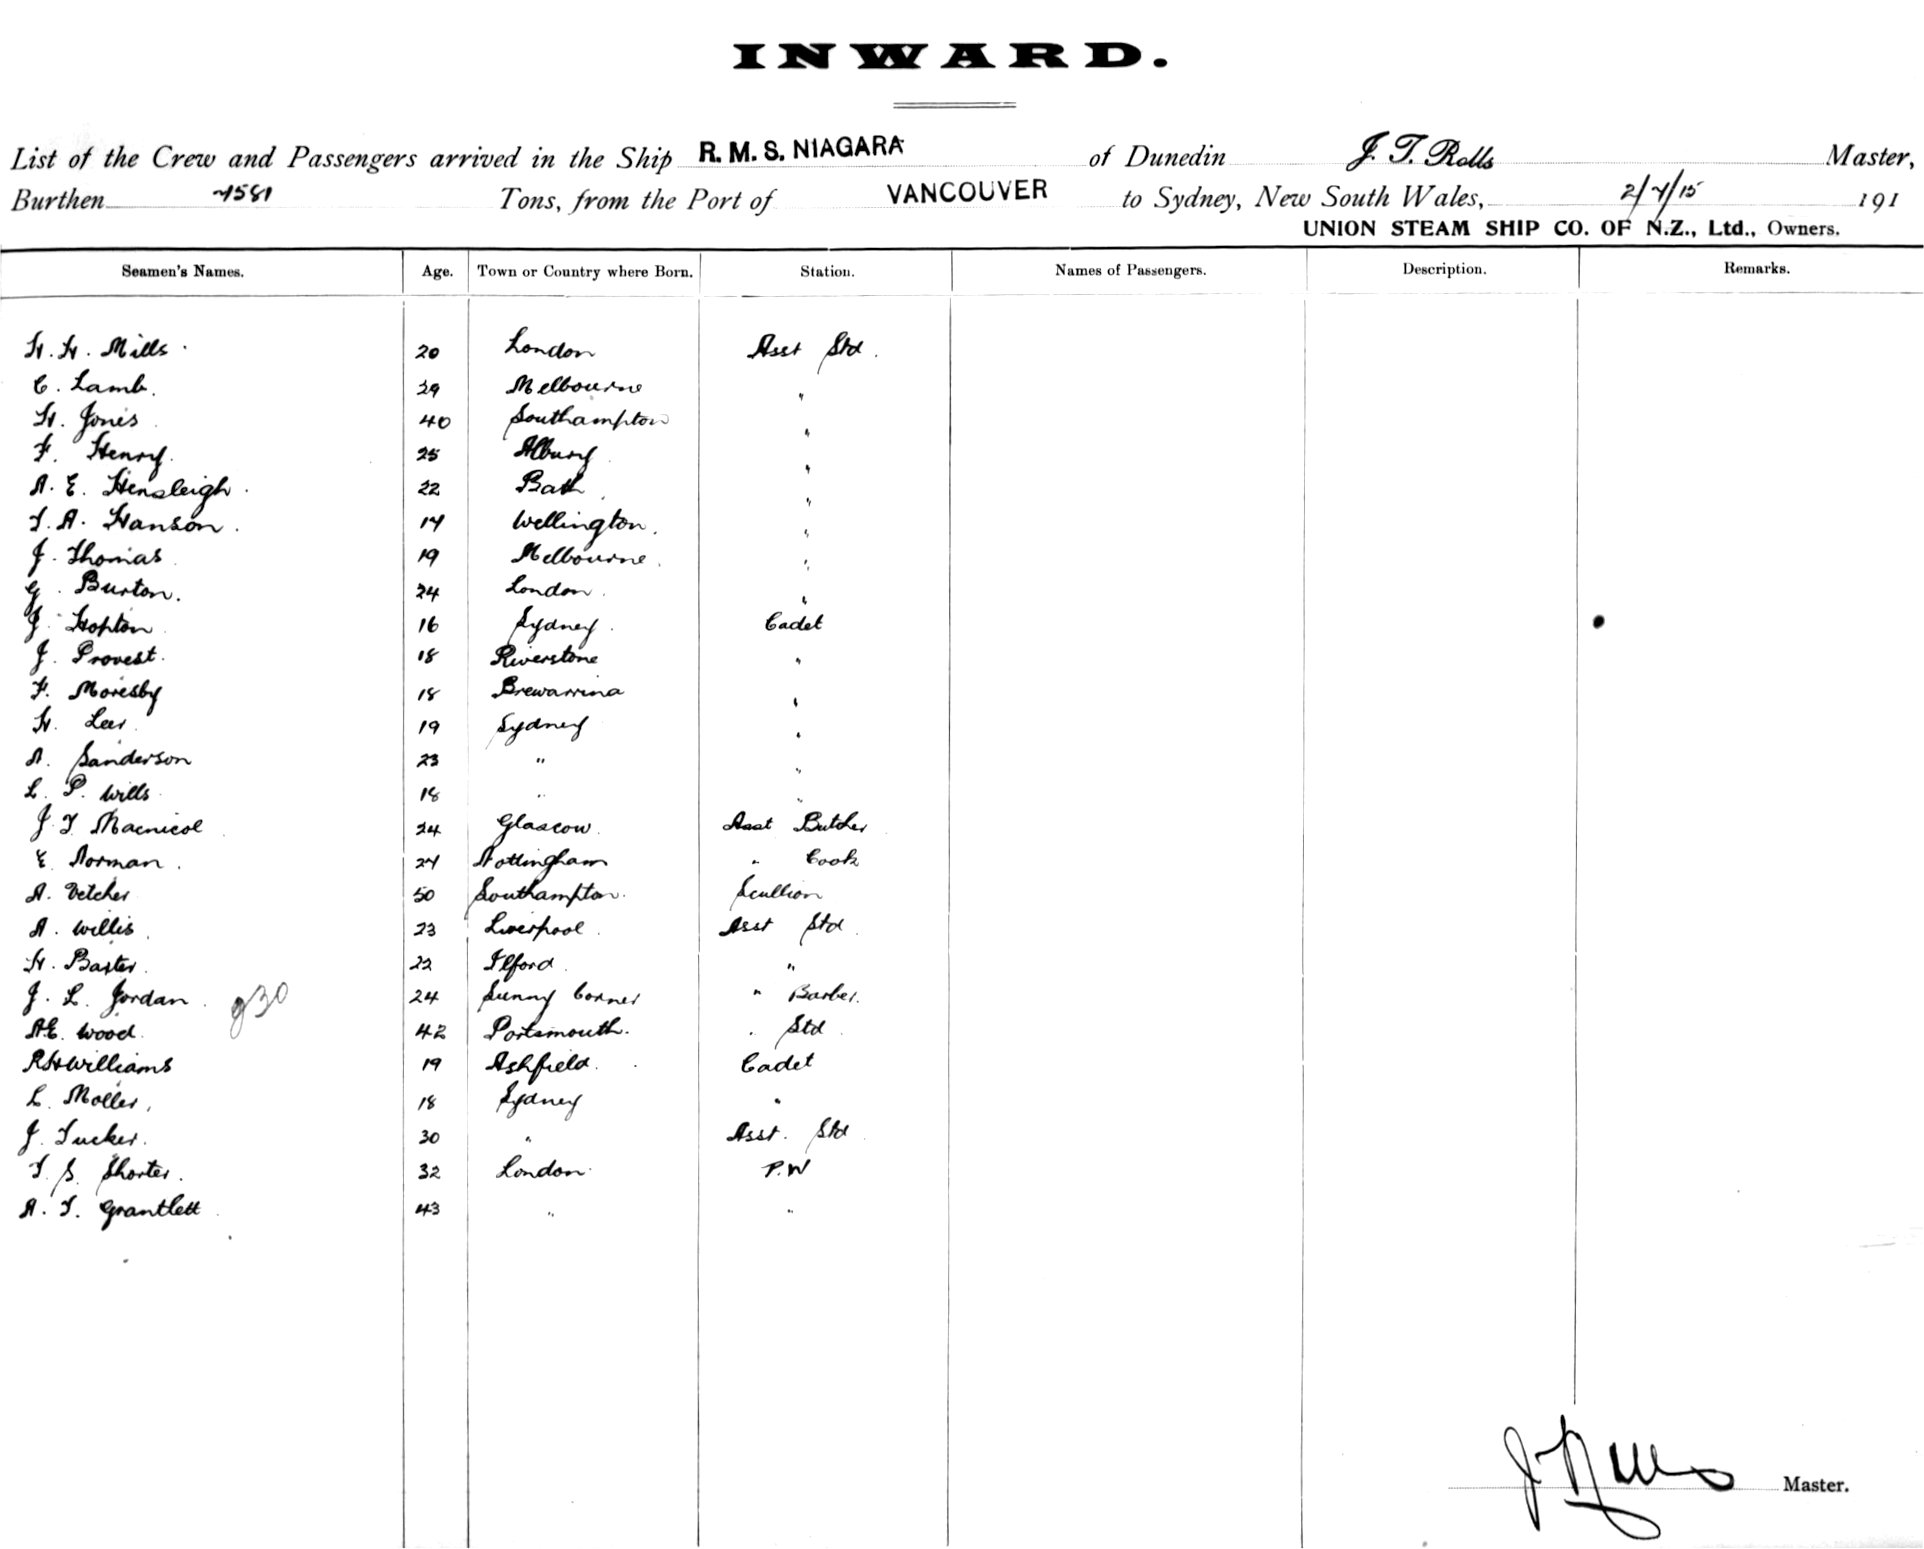 INWARD.
List of the Crew and Passengers arrived in the Ship R. M. S. NIAGARA of Dunedin J. T. Rolls Master,
Burthen 7581 Tons, from the Port of VANCOUVER to Sydney, New South Wales, 2/7/15 191
UNION STEAM SHIP CO. OF N.Z., Ltd., Owners.
Seamen's Names. Age. Town or Country where Born. Station. Names of Passengers. Description. Remarks.
H. H. Mills 20 London Asst Std.
C. Lamb. 29 Melbourne "
H. Jones 40 Southampton "
F. Henry. 25 Albury "
A. E. Hensleigh. 22 Bath "
T. A. Hanson. 17 Wellington. "
J. Thomas 19 Melbourne. "
G. Burton. 24 London. "
J. Hopton 16 Sydney. Cadet
J. Provest. 18 Riverstone "
F. Moresby 18 Brewarrina "
H. Leer 19 Sydney "
A. Sanderson 23 " "
L. P. Wills 18 " "
J. T. Macnicol 24 Glascow. Asst Butcher
E. Norman. 27 Nottingham " Cook
A. Vetcher 50 Southampton. Scullion
A. Willis 23 Liverpool. Asst Std.
H. Baxter. 22 Ilford. "
J. L. Jordan. 24 Sunny Corner " Barber.
A.E. Wood. 42 Portsmouth. " Std
R H Williams 19 Ashfield. Cadet
L. Moller, 18 Sydney "
J. Tucker. 30 " Asst. Std
T. S. Shorter. 32 London. P.W
A. T. Grantlett 43 " "
Master.